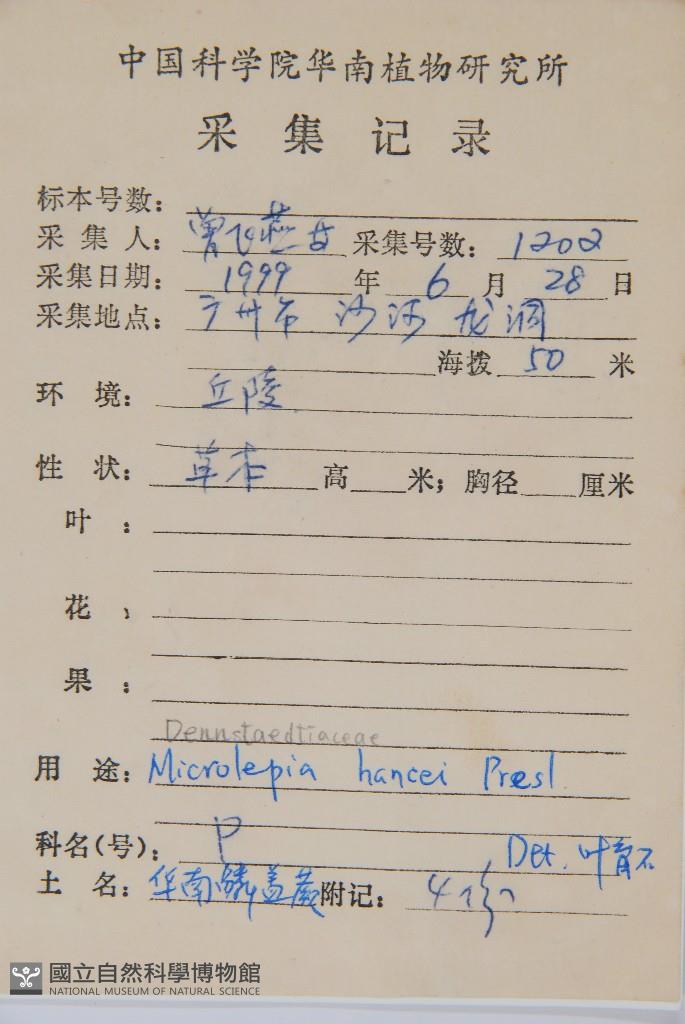 中国科学院华南植物研究所
采集记录
标本号数:
采集人: 曾飞燕 采集号数: 1202
采集日期: 1999 年 6 月 28 日
采集地点: 广州市 沙河 龙洞
海拨 50 米
环境: 丘陵
性状: 草本 高 米; 胸径 厘米
叶:
花:
果:
Dennstaedtiaceae
用途: Microlepia hancei Presl
科名(号): P
Det. 叶育石
土名: 华南鳞盖蕨 附记: 4份
國立自然科學博物館
NATIONAL MUSEUM OF NATURAL SCIENCE